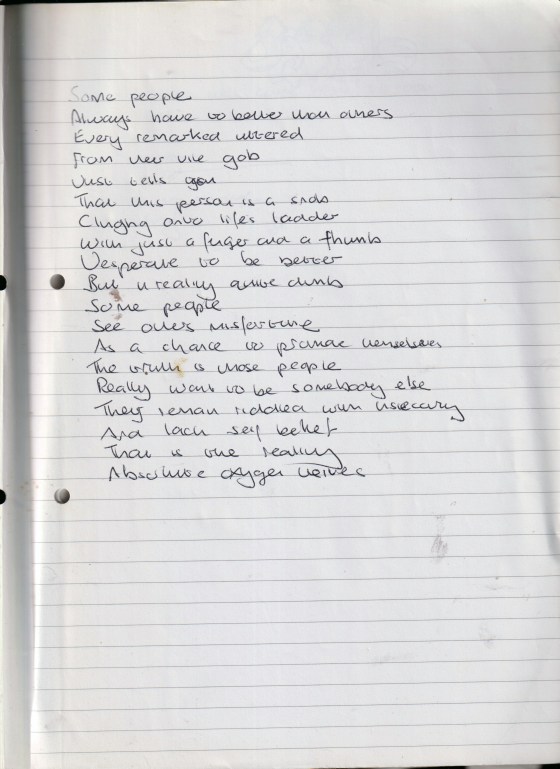 Some people
Always have to better than others
Every remarked uttered
From their vile gob
Just tells you
That this person is a snob
Clinging onto lifes ladder
With just a finger and a thumb
Desperate to be better
But in reality quite dumb
Some people
See others misfortune
As a chance to promote themselves
The truth is those people
Really want to be somebody else
They remain riddled with insecurity
And lack self belief
That is the reality
Absolute oxygen thieves